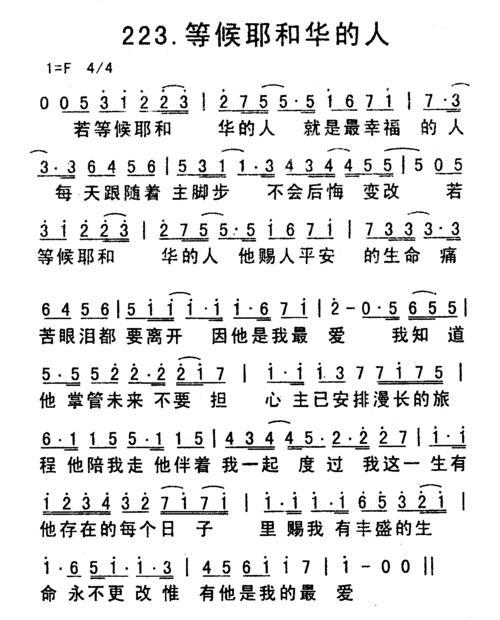 223.等候耶和华的人
1=F 4/4
0 0 5 3 1 2 2 3 | 2 7 5 5·5 1 6 7 1 | 7·3
若等候耶和 华的人 就是最幸福 的人
3·3 6 4 5 6 | 5 3 1 1·3 4 3 4 4 5 5 | 5 0 5
每 天跟随着 主脚步 不会后悔 变改 若
3 1 2 2 3 | 2 7 5 5·5 1 6 7 1 | 7 3 3 3·3
等候耶和 华的人 他赐人平安 的生命 痛
6 4 5 6 | 5 1 1 1·1 1·6 7 1 | 2-0·5 6 5 5 |
苦眼泪都 要离开 因他是我最 爱 我知道
5·5 5 2 2·2 2 1 7 | 1·1 1 3 7 7 1 7 5 |
他 掌管未来 不要 担 心 主已安排漫长的旅
6·1 1 5 5·1 1 5 | 4 3 4 4 5·2·2 2 7 | 1·1
程 他陪我走 他伴着 我一起 度 过 我这一 生有
1 2 3 4 3 2 7 1 7 1 | 1·1 1·1 6 5 3 2 1 |
他存在的每个日 子 里 赐我 有丰盛的生
1·6 5 1·1·3 | 4 5 6 1 1 7 | 1-0 0 ||
命 永不更 改 惟 有他是我的最 爱